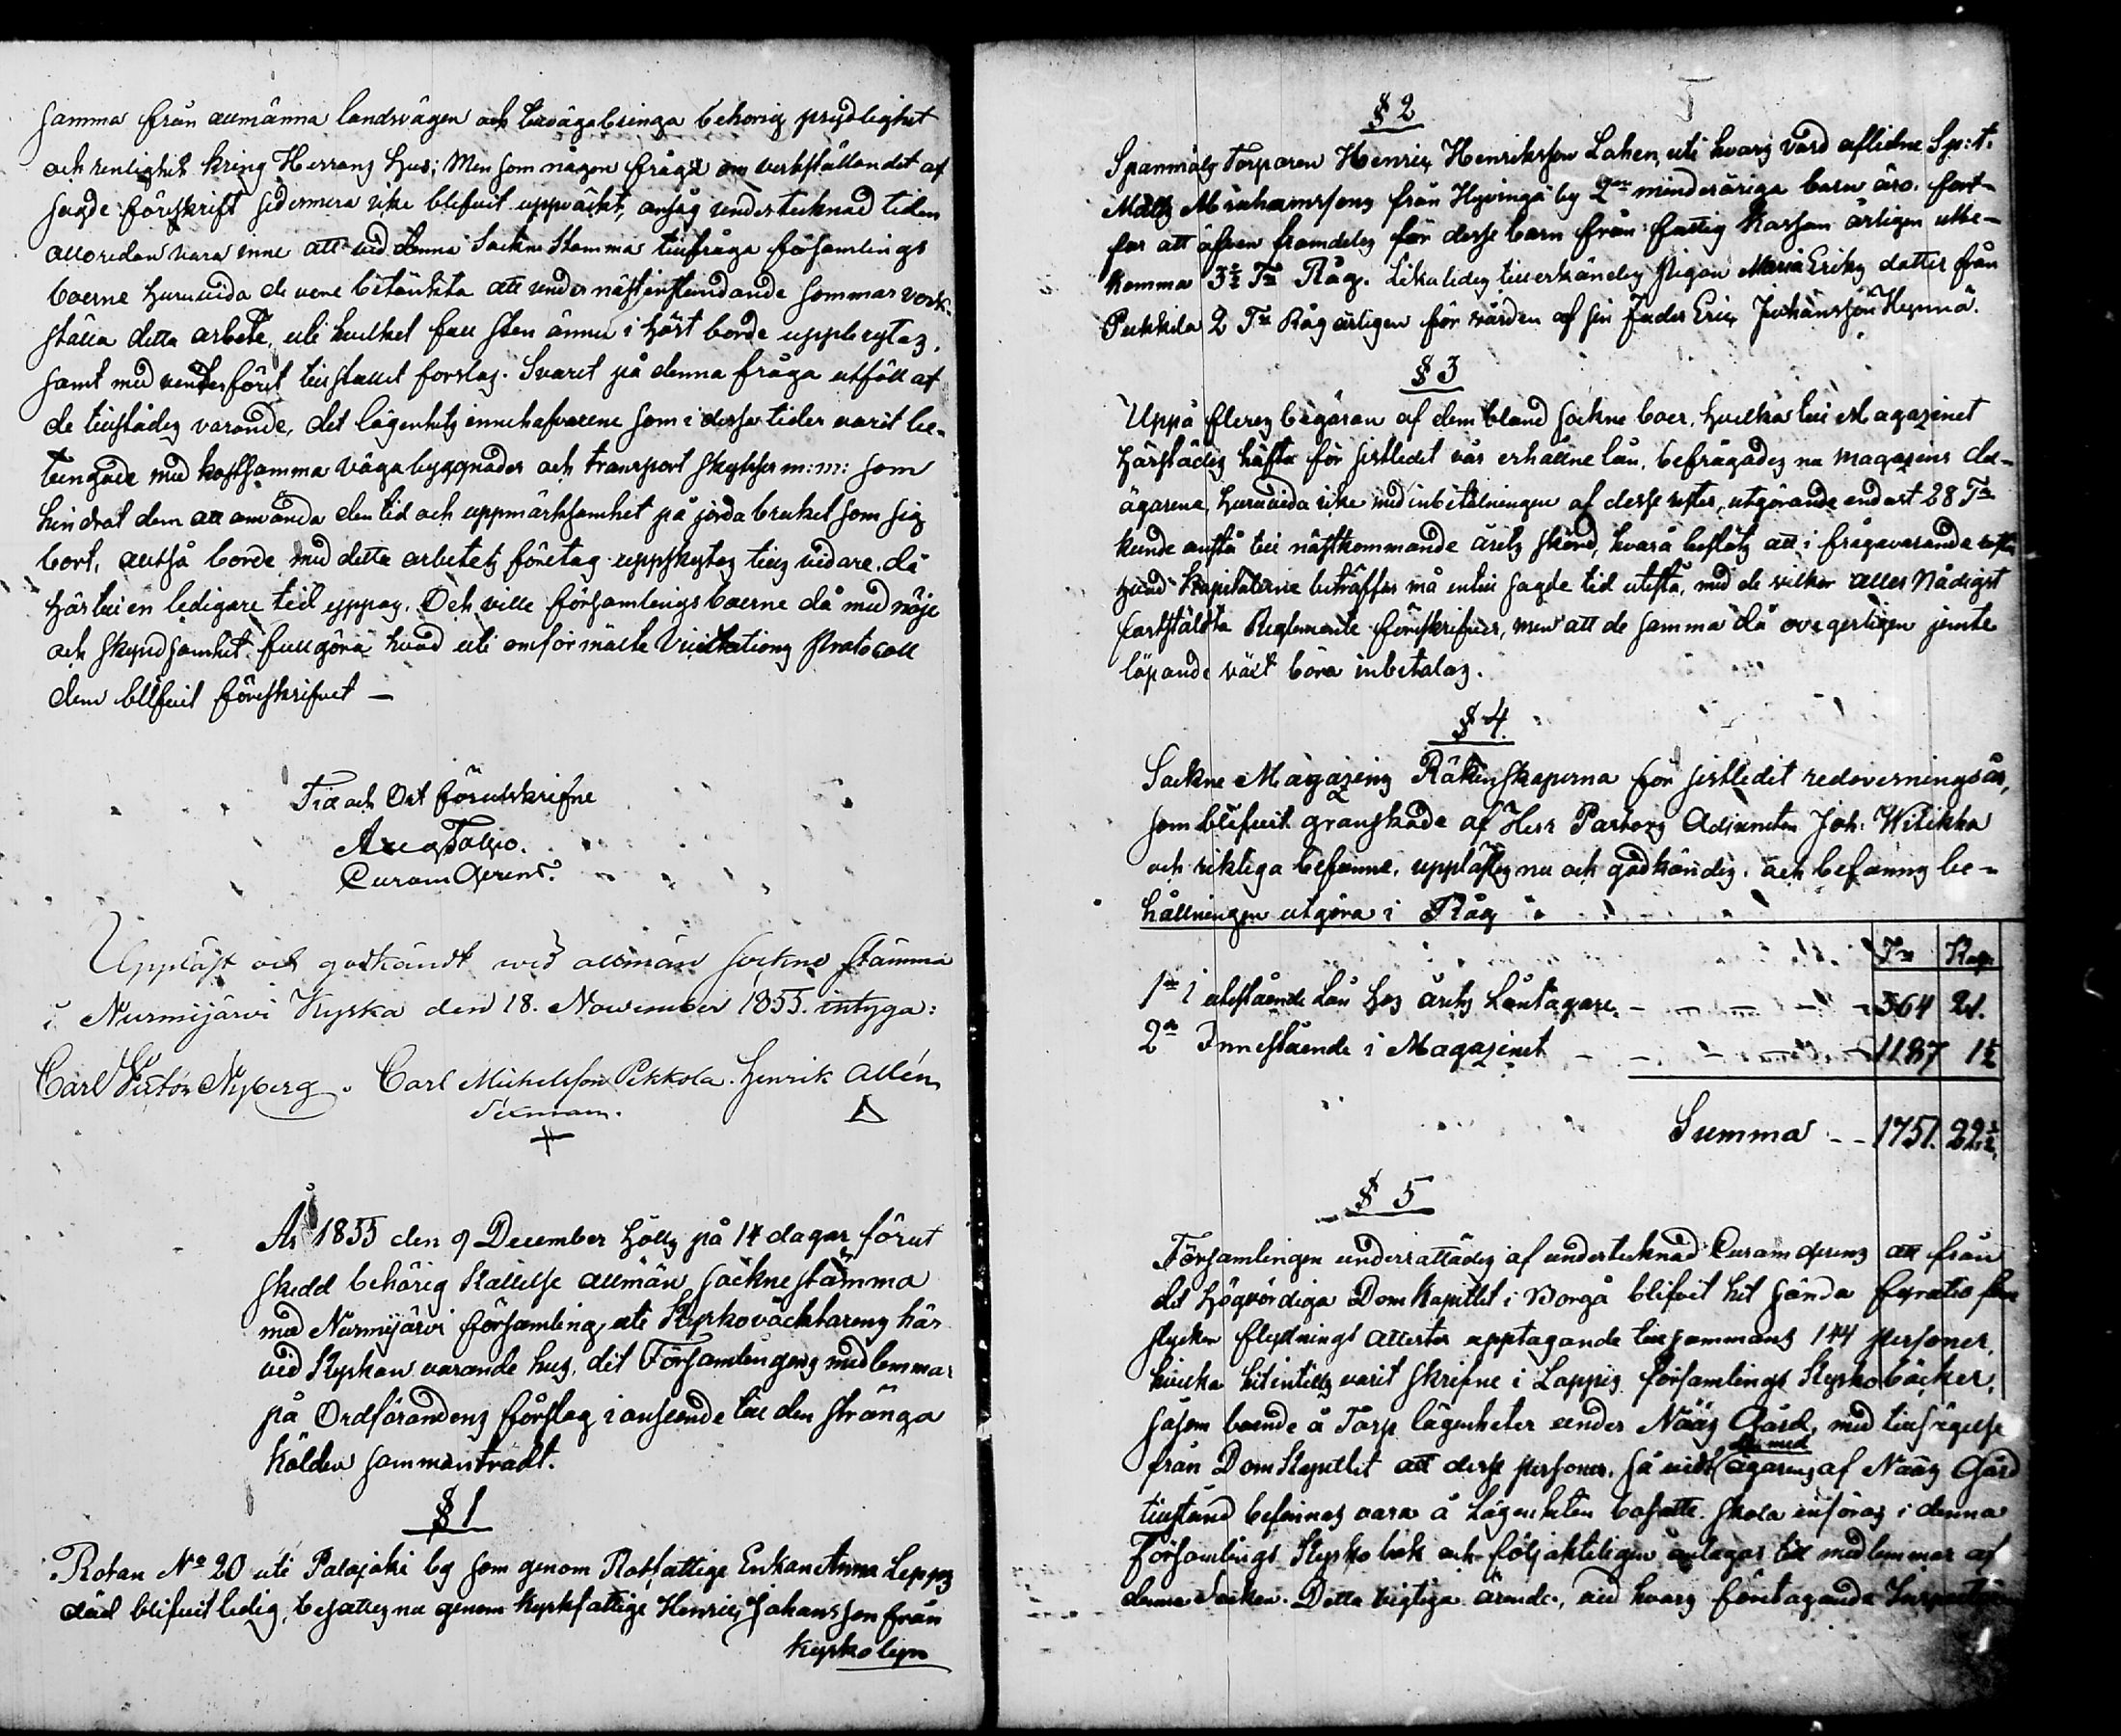 samma från allmänna landsvägen och tillvägabringa behörig prydlighet
och renlighet kring Herrans hus; Men som någon fråga om verkställandet af
sagde föreskrift sedermera icke blifvit uppväckt, ansåg undertecknad tiden
alloredan vara inne att vid denna Sockne Stämma tillfråga församlings
boerne huruvida de vore betänkta att under nästinstundande sommar verk-
ställa detta arbete, uti hvilket fall sten ännu i höst borde uppbrytas,
samt med vinterföret till stället forslas. Svaret på denna fråga utföll af
de tillstädes varande, det lägenhets innehafvarene som i desse tider varit be-
tungade med kostsamma vägabyggnader och transport skjutser m: m: som
hindrat dem att använda den tid och uppmärksamhet på jordabruket som sig
bort, alltså borde med detta arbetets företag uppskjutas tills vidare, då
härtill en ledigare tid yppas. Och ville församlings boerne då med nöje
och skyndsamhet fullgöra hvad uti omförmälte Visitations Protocoll
dem blifvit föreskrifvet —
Tid och Ort förutskrifne
Axel
Curam Gerens.
Uppläst och godkändt wid allmän sockne stämma
i Nurmijärvi Kyrka den 18. November 1855. intyga:
Carl Victor Nyberg. Carl Michelsson Pekkola. Henrik Allén
Sexman.
År 1855 den 9 December hölls på 14 dagar förut
skedd behörig Kallelse allmän socknestämma
med Nurmijärvi församling uti Kyrkoväcktarens här
ved Kyrkan varande hus, dit Församlingens medlemmar
på Ordförandens förslag i anseende till den stränga
kölden sammanträdt.
§ 1
Rotan No 20 uti Palojoki by som genom Rotfattige Enkan Anna Lepps
död blifvit ledig, besattes nu genom kyrkfattige Henric Johansson från
kyrkobyn
§ 2
Spanmåls Torparen Henric Henriksson Lahen, uti hvars vård aflidne Sp: t:
Matts Abrahamssons från Hyvingä by 2ne minderåriga barn äro, fort-
far att äfven framdeles för desse barn från fattig Kassan årligen utbe-
komma 3½ Tnr Råg. Likaledes tillerkändes Pigan Maria Eriks dotter från
Pekkola 2 Tnr Råg årligen för vården af sin fader Eric Johansson
§ 3
Uppå fleres begäran af dem bland sockne boer, hvilka till Magazinet
härstädes häfta för sistledet vår erhållne lån, befrågades nu magasins del-
ägarena, huruvida icke med inbetalningen af desse rester, utgörande endast 28 Tnr
kunde anstå till nästkommande årets skörd, hvarå beslöts att i frågavarande rester
hvad Kapitalerne beträffar må intill sagde tid utestå, med de vilkor aller Nådigst
fastställda Reglemente föreskrifver, men att de samma då ovegerligen jemte
löpande växt böra inbetalas.
§ 4.
Sockne Magazins Räkenskaperna för sistledit redovisningsår,
som blifvit granskade af Herr Pastors Adjuncten Joh: Wilikka
och riktiga befunne, upplästes nu och godkändes, och befanns be-
hållningen utgöra i Råg
Tnr Kapr
1o i utestående Lån hos årets Låntagare - - - 564 21.
2o Innestående i Magazinet - - - 1187 1½
Summa - - 1751. 22½.
§ 5
Församlingen underrättades af undertecknad Curam gerens att från
det högvördiga Domkapitlet i Borgå blifvit hit sända fyratio fem
stycken flyttnings attester upptagande tillsammans 144 personer,
hvilka hitintills varit skrifne i Lappis församlings Kyrkoböcker,
såsom boende å Torp lägenheter under Nääs Gård, med tillsägelse
från Domkapitlet att desse personer, så vidt de med ägarens af Nääs Gård
tillstånd befinnas vara å lägenheten bosatte, skola införas i denna
Församlings Kyrko bok och följaktligen antagas till medlemmar af
denna Socken. Detta vigtiga ärende, vid hvars företagande